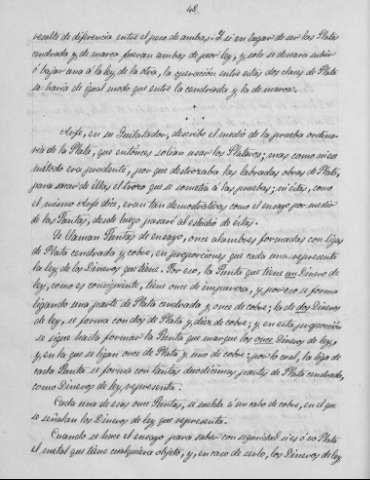 48.
resulte de diferencia entre el peso de ambas. Y si en lugar de ser las Platas
cendrada y de marco fueran ambas de peor ley, y solo se deseara subir
ó bajar una á la ley de la otra, la operacion entre estas dos clases de Plata
se haria de igual modo que entre la cendrada y la de marco.
Arfe, en su Quilatador, describe el medio de la prueba ordina-
ria de la Plata, que entónces solian usar los Plateros; mas como
método era por que destrozaba las labradas obras de Plata,
para sacar de ellas el trozo que se sometia á las pruebas; ni éstas, como
el mismo Arfe dice, eran tan demostrativas como el ensayo por medio
de las Puntas, desde luego pasaré al estudio de éstas.
Se llaman Puntas de ensayo, once alambres formados con ligas
de Plata cendrada y cobre, en proporciones que cada una represente
la ley de los Dineros que tiene. Por eso, la Punta que tiene un Dinero de
ley, como es consiguiente, tiene once de impureza, y por eso se forma
ligando una parte de Plata cendrada y once de cobre; la de dos Dineros
de ley, se forma con dos de Plata y diez de cobre; y en esta proporcion
se sigue hasta formar la Punta que marque los once Dineros de ley,
y en la que se ligan once de Plata y uno de cobre: por lo cual, la liga de
cada Punta se forma con tantas duodécimas partes de Plata cendrada,
como Dineros de ley representa.
Cada una de esas once Puntas, se suelda á un cabo de cobre, en el que
se señalan los Dineros de ley que representa.
Cuando se hace el ensayo para saber con seguridad si es ó no Plata
el metal que tiene cualquiera objeto, y, en caso de serlo, los Dineros de ley